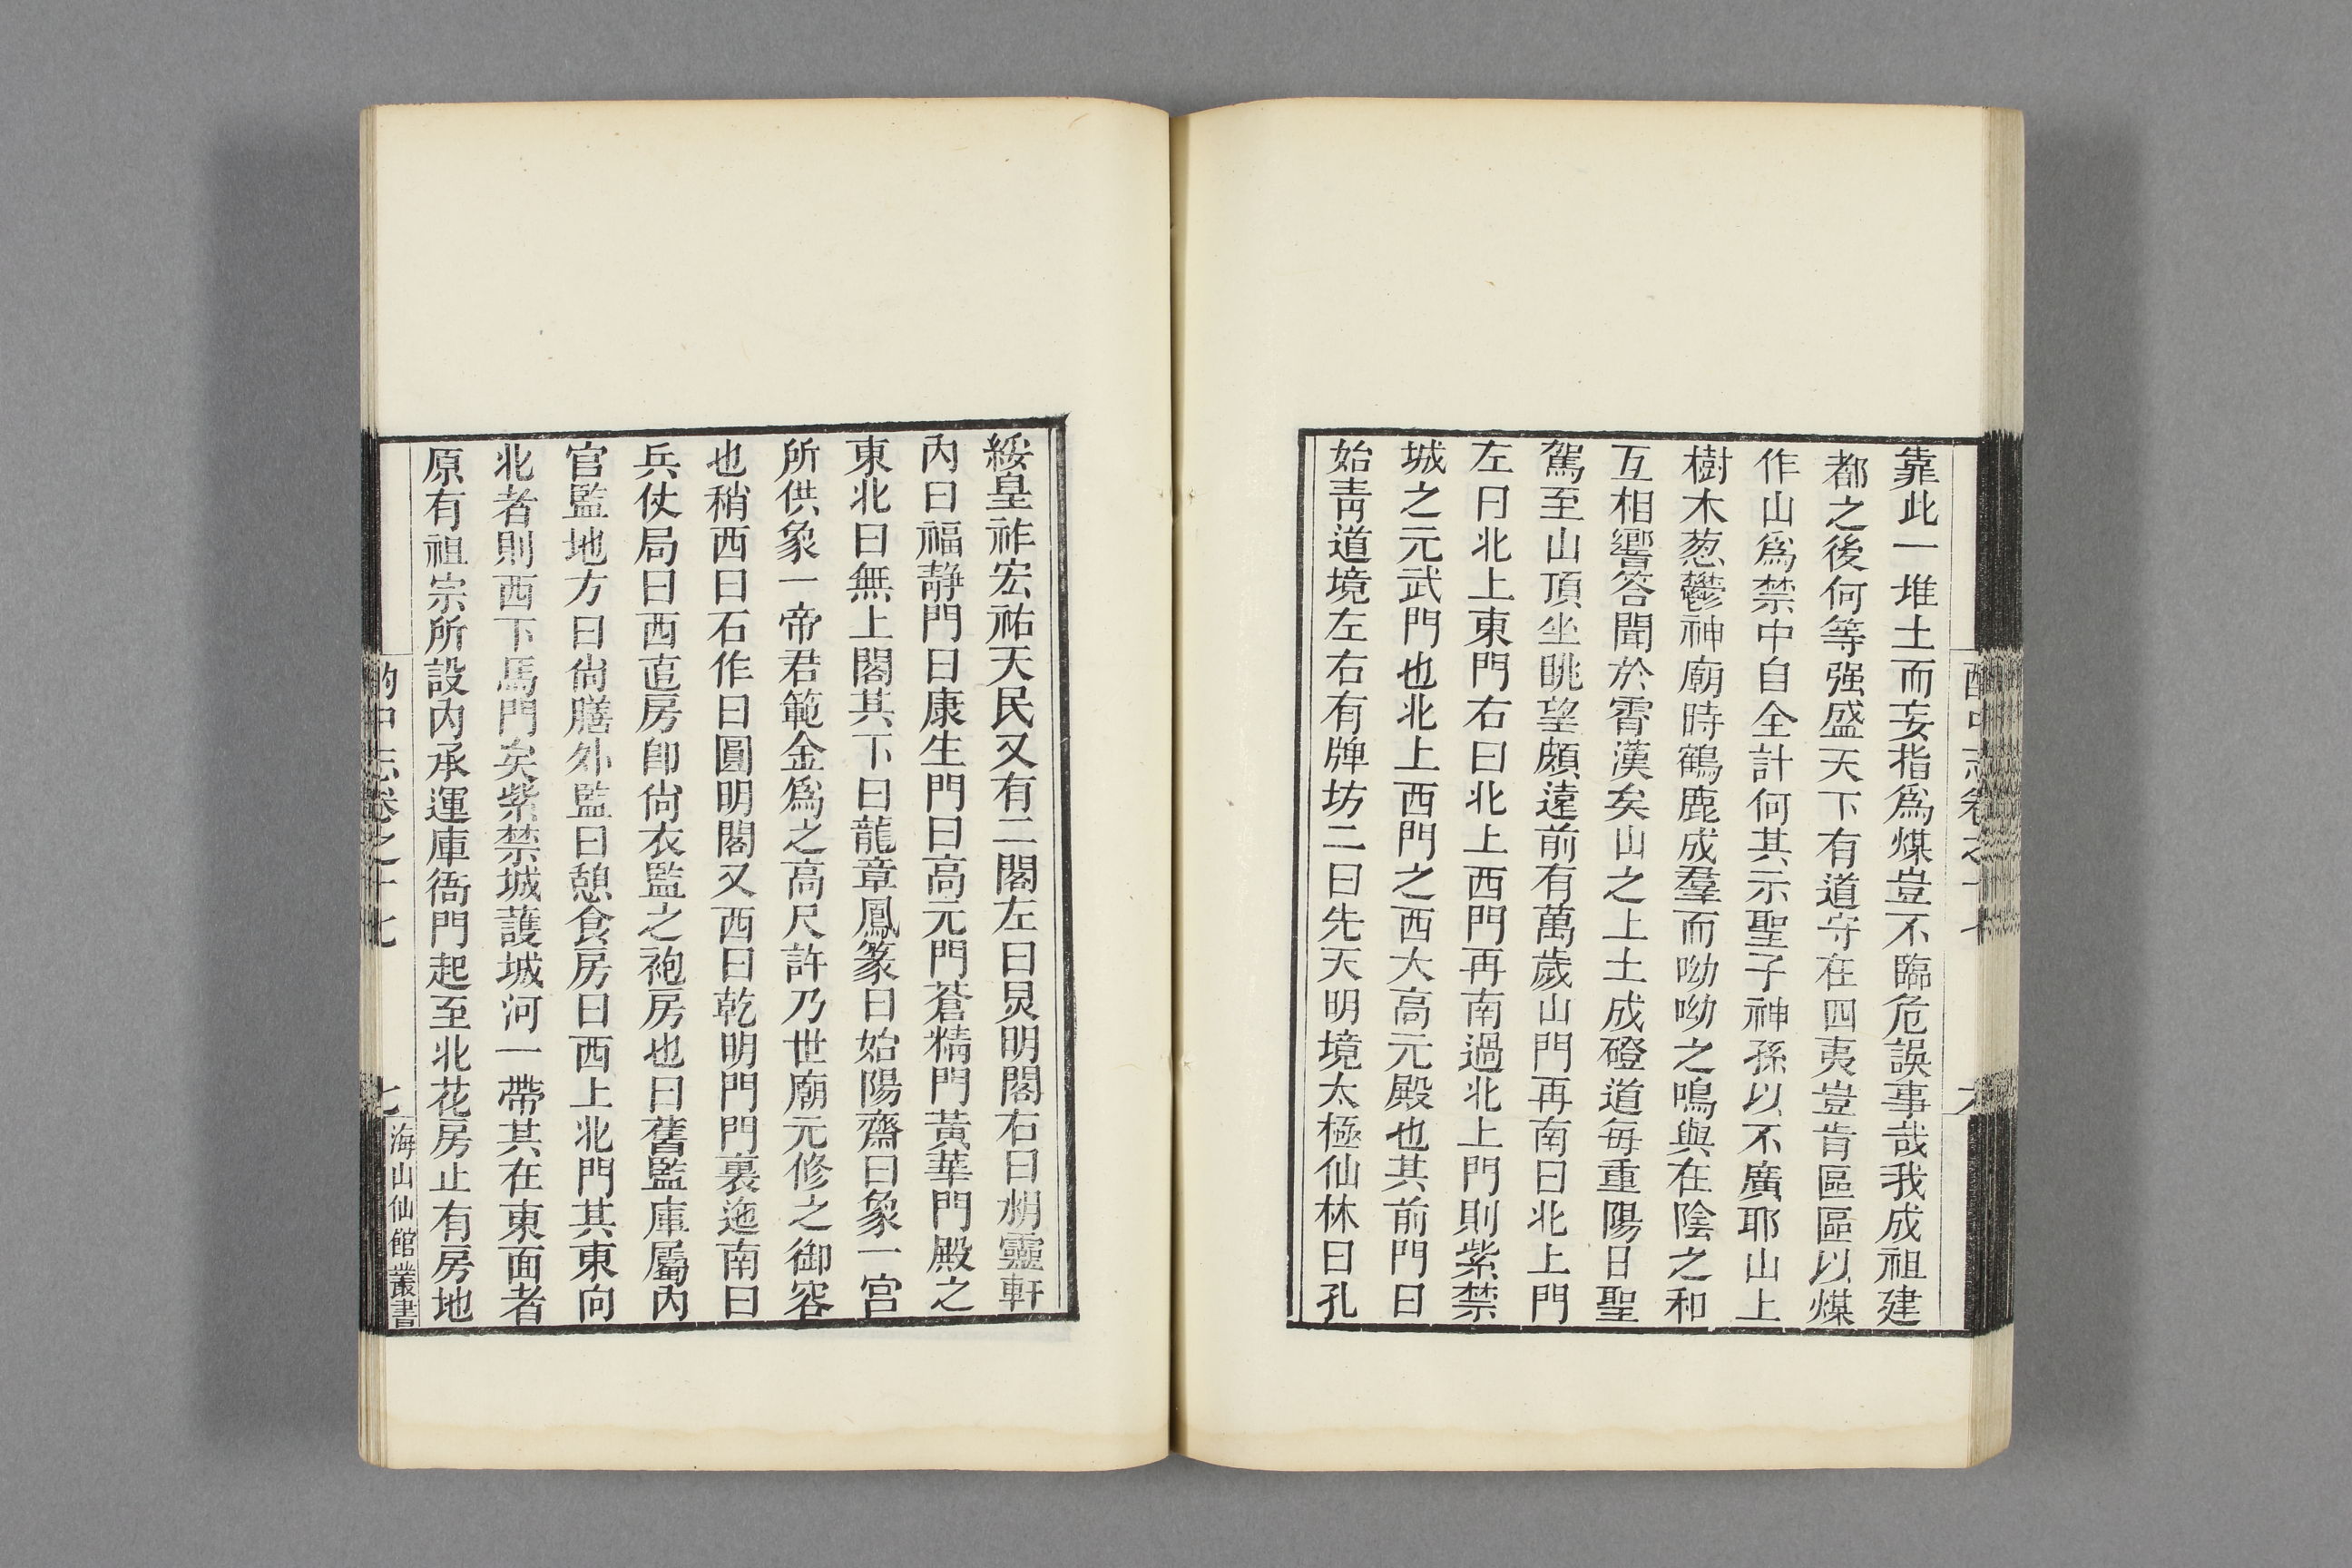 酌中志卷之十七
六
靠此一堆土而妄指爲煤豈不臨危誤事哉我成祖建
都之後何等强盛天下有道守在四夷豈肯區區以煤
作山爲禁中自全計何其示聖子神孫以不廣耶山上
樹木葱鬱神廟時鶴鹿成羣而呦呦之鳴與在陰之和
互相響答聞於霄漢矣山之上土成磴道每重陽日聖
駕至山頂坐眺望頗遠前有萬歲山門再南曰北上門
左曰北上東門右曰北上西門再南過北上門則紫禁
城之元武門也北上西門之西大高元殿也其前門曰
始靑道境左右有牌坊二曰先天明境太極仙林曰孔
綏皇祚宏祐天民又有二閣左曰炅明閣右曰𣇄靈軒
內曰福靜門曰康生門曰高元門蒼精門黃華門殿之
東北曰無上閣其下曰龍章鳳篆曰始陽齋曰象一宮
所供象一帝君範金爲之高尺許乃世廟元修之御容
也稍西曰石作曰圓明閣又西曰乾明門門裏迤南曰
兵仗局曰西直房卽尙衣監之袍房也曰舊監庫屬內
官監地方曰尙膳外監曰憩食房曰西上北門其東向
北者則西下馬門矣紫禁城護城河一帶其在東面者
原有祖宗所設內承運庫衙門起至北花房止有房地
酌中志卷之十七
七
海山仙館叢書